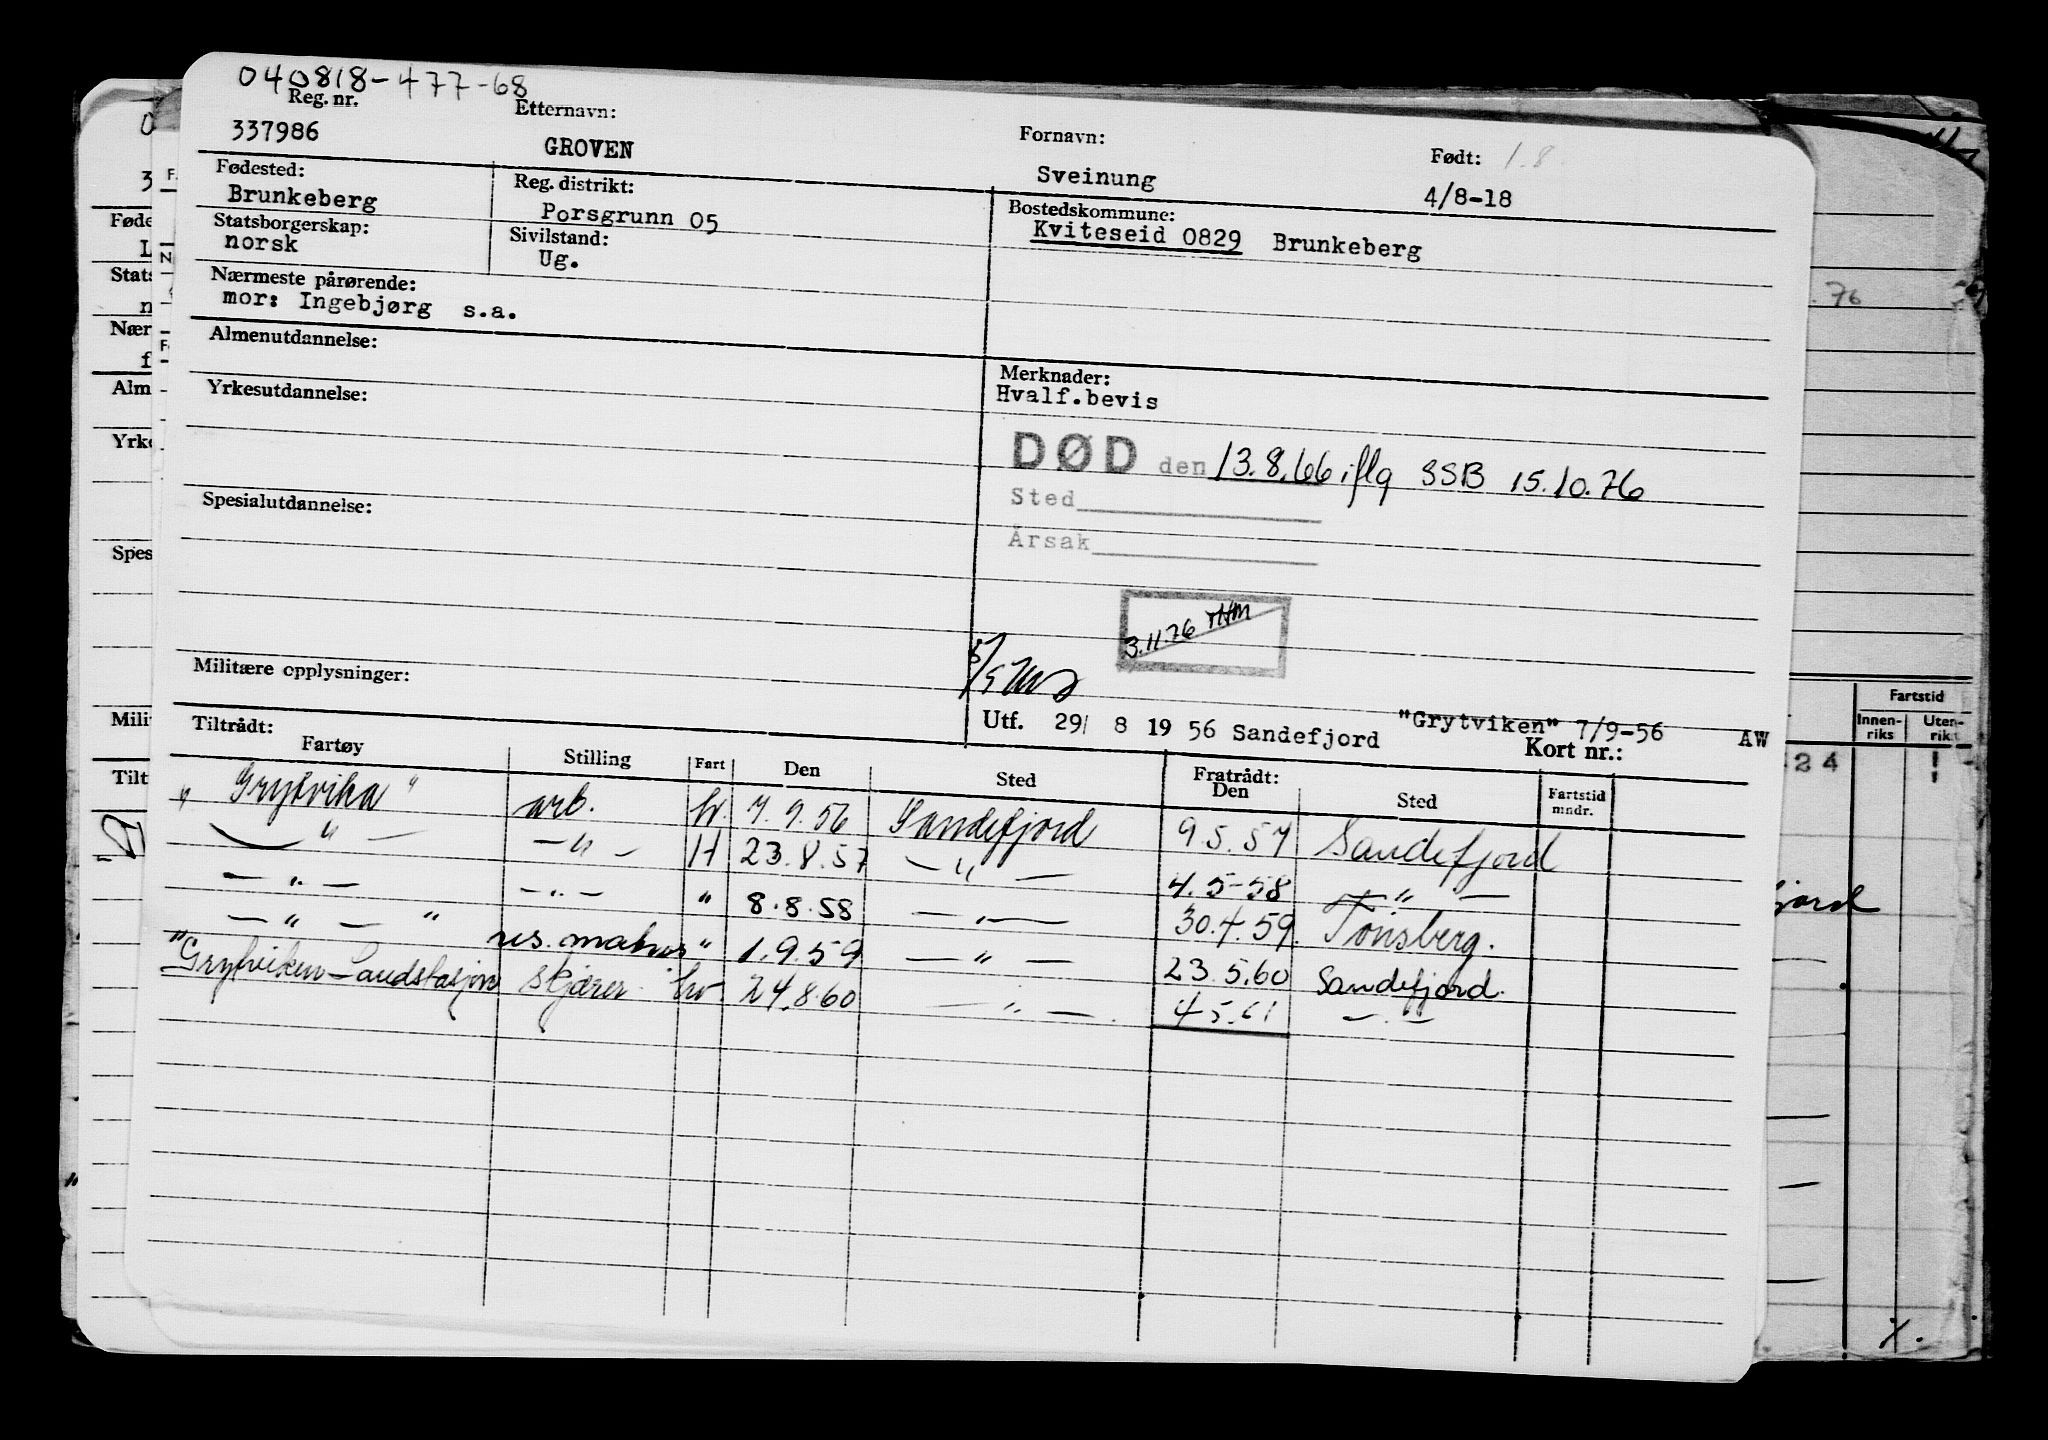 040818-477-68
Reg. nr. Etternavn: Fornavn: Født: 1.8.
337986 GROVEN Sveinung 4/8-18
Fødested: Reg. distrikt: Bostedskommune:
Brunkeberg Porsgrunn 05 Kviteseid 0829 Brunkeberg
Statsborgerskap: Sivilstand:
norsk Ug.
Nærmeste pårørende:
mor: Ingebjørg s.a.
Almenutdannelse:
Merknader:
Yrkesutdannelse: Hvalf.bevis
DØD den 13.8.66 iflg SSB 15.10.76
Spesialutdannelse: Sted
Årsak
3.11.76
Militære opplysninger:
Utf. 29/ 8 19 56 Sandefjord "Grytviken" 7/9-56 AW
Tiltrådt: Kort nr.:
Fartøy Stilling Fart Den Sted Fratrådt: Den Sted Fartstid mndr.
"Grytvika" arb. hv. 7.9.56 Sandefjord 9.5.57 Sandefjord
— " — — " — H 23.8.57 — " — 4.5-58 — " —
— " — — " — " 8.8.58 — " — 30.4.59. Tønsberg.
— " — " res. matros " 1.9.59 — " — 23.5.60 Sandefjord.
"Grytviken Landstasjon skjærer hv 24.8.60 — " — 4.5.61 — " —
Føde
Stats
Nær
Alm
Yrke
Spes
Mili
Tilt
.76
Fartstid
Innen-riks Uten-rik
24
jord